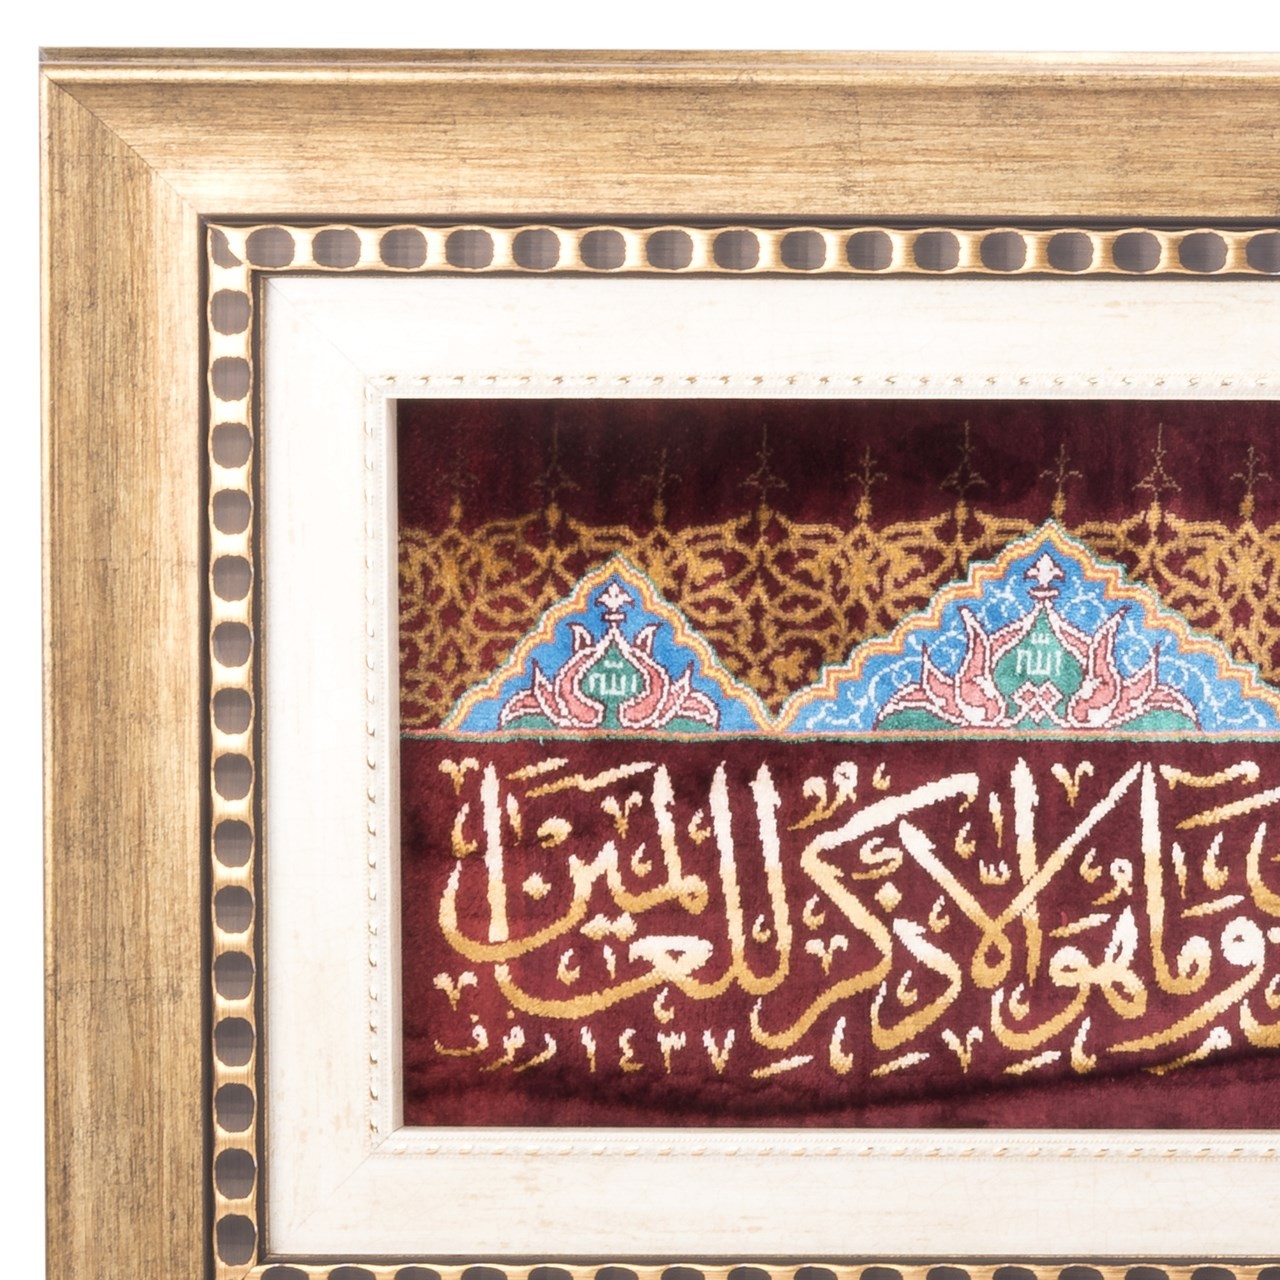 الله
الله
وما هو إلا ذكر للعالمين
١٤٣٧